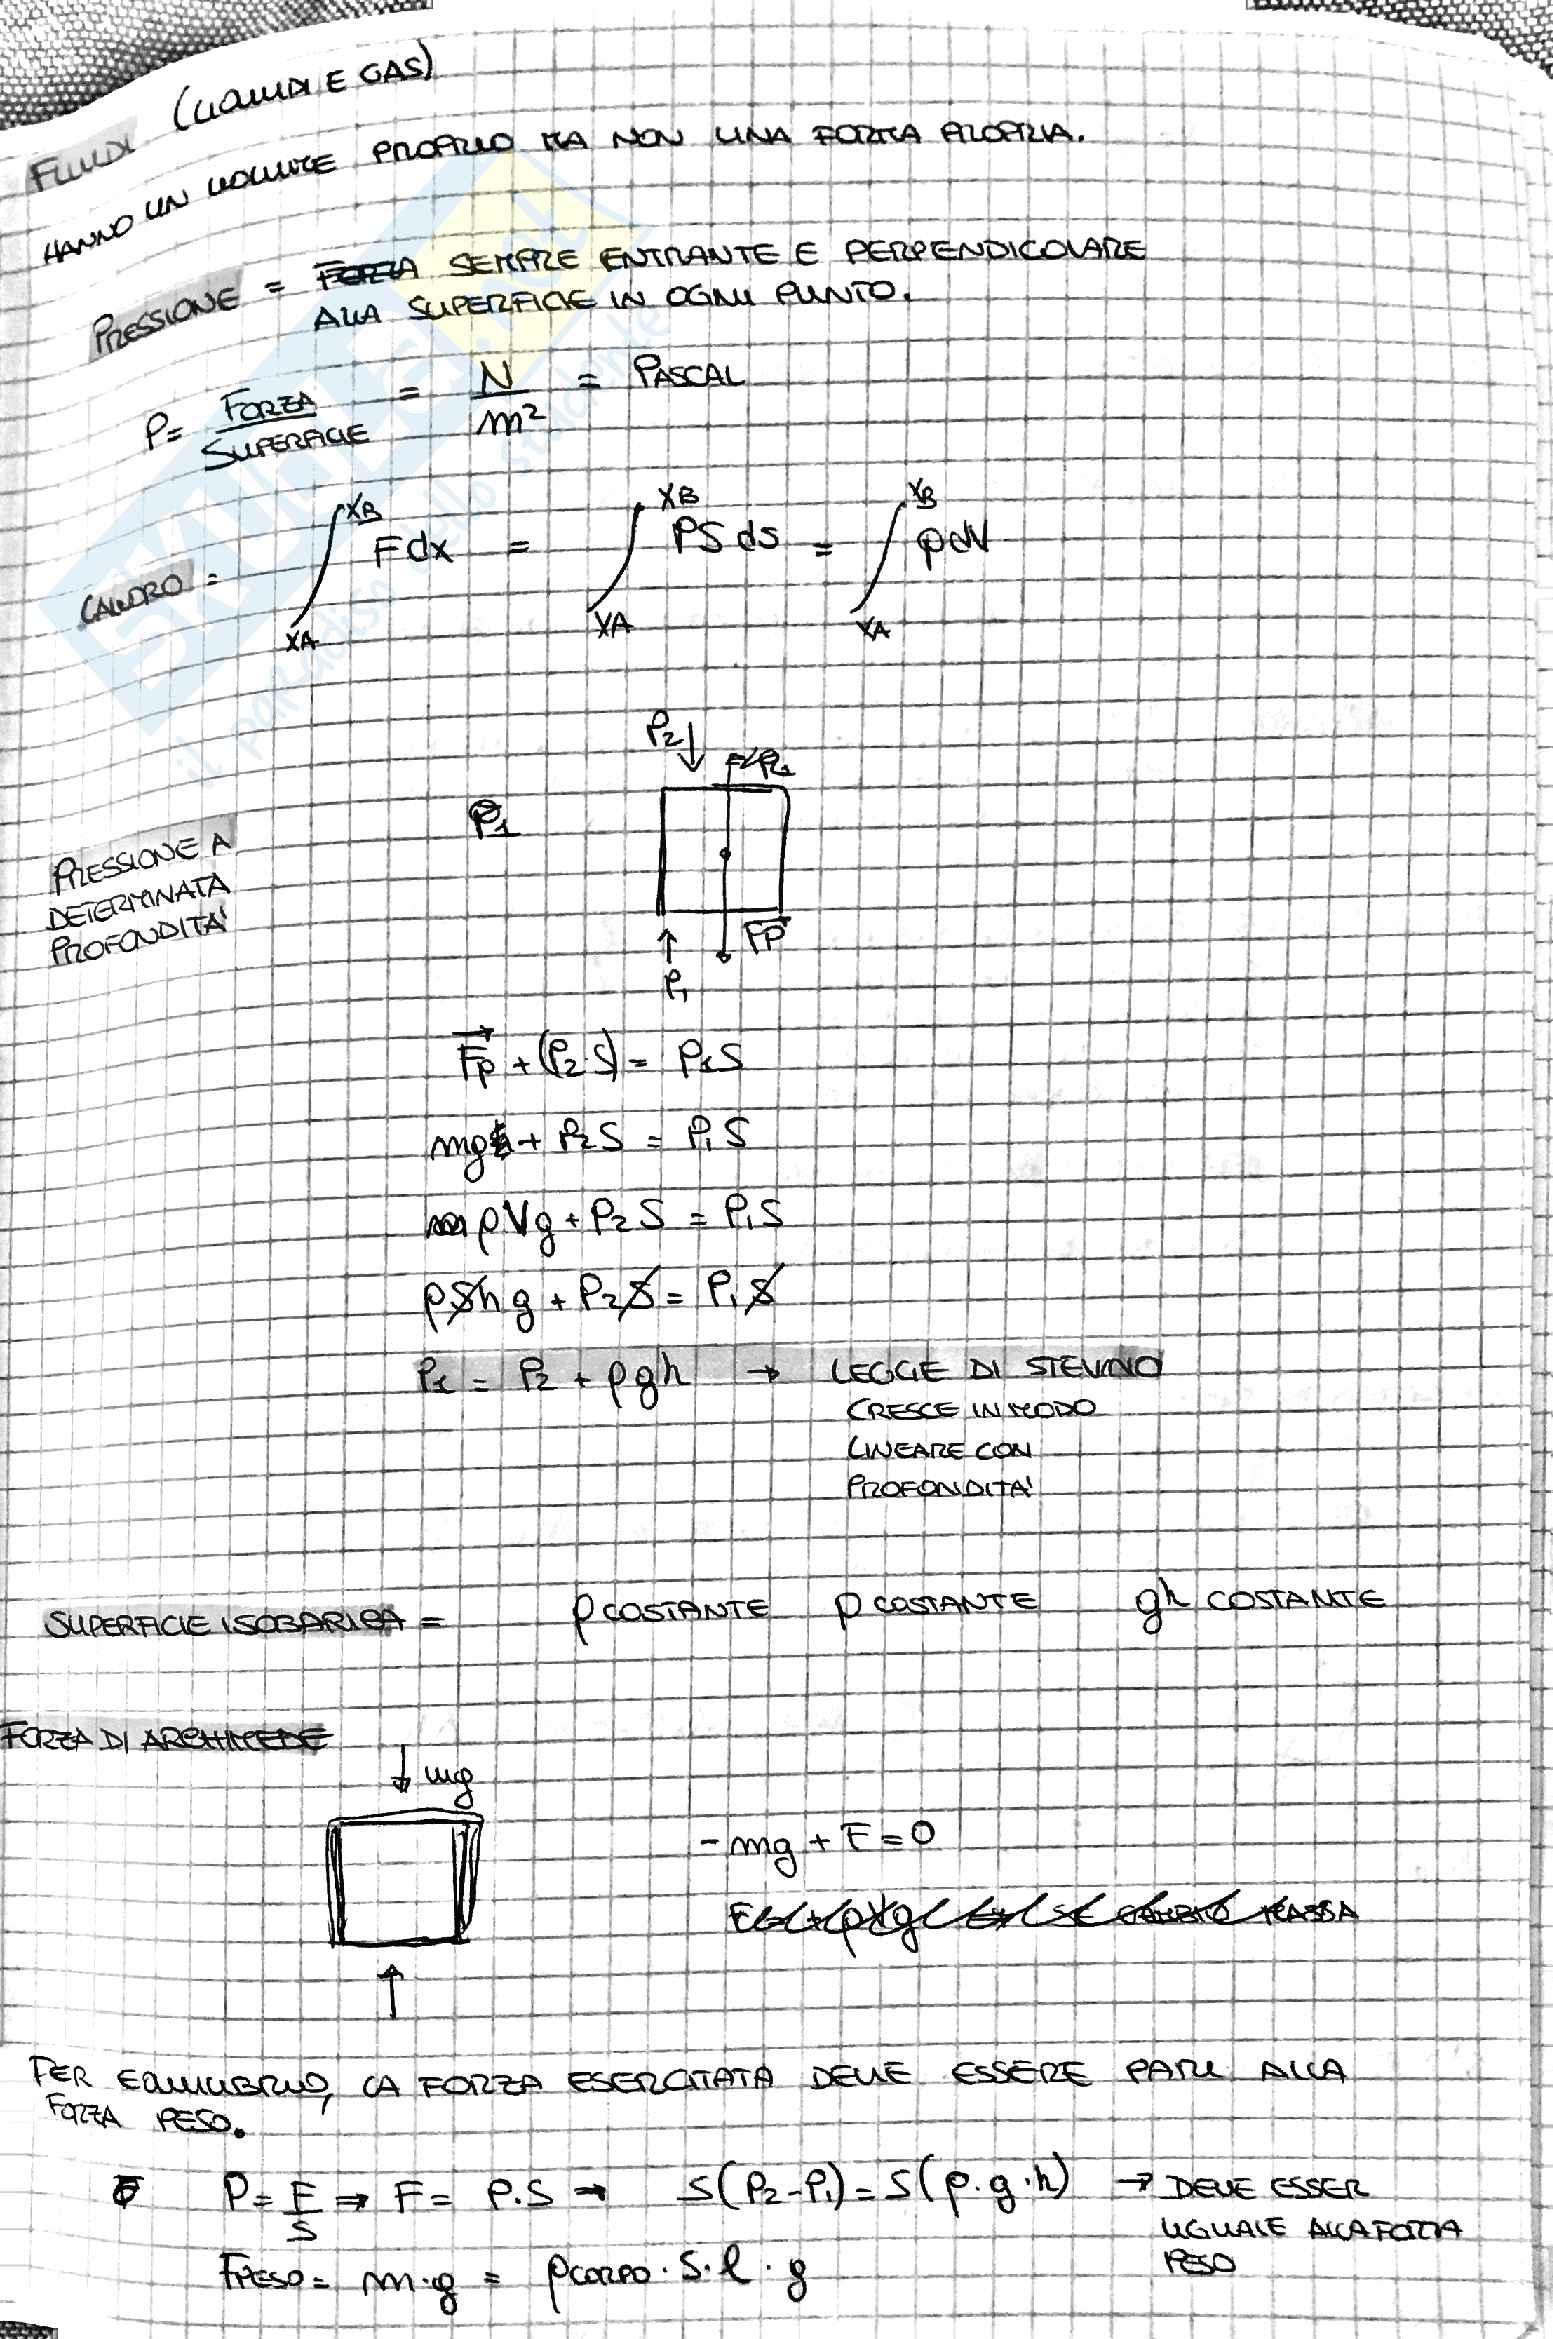 FLUIDI (LIQUIDI E GAS)
HANNO UN VOLUME PROPRIO MA NON UNA FORMA PROPRIA.
PRESSIONE = FORZA SEMPRE ENTRANTE E PERPENDICOLARE
ALLA SUPERFICIE IN OGNI PUNTO.
P = FORZA / SUPERFICIE = N / m² = PASCAL
LAVORO = ∫ XA XB F dx = ∫ XA XB PS ds = ∫ XA XB p dV
P2 ↓
P1
PRESSIONE A
DETERMINATA
PROFONDITA'
Fp
↑
P1
Fp + (P2·S) = P1S
mg + P2S = P1S
ρVg + P2S = P1S
ρShg + P2S = P1S
P1 = P2 + ρgh → LEGGE DI STEVINO
CRESCE IN MODO
LINEARE CON
PROFONDITA'
SUPERFICIE ISOBARICA = ρ COSTANTE p COSTANTE gh COSTANTE
FORZA DI ARCHIMEDE
↓ mg
- mg + F = 0
SE CAMBIO MASSA
PER EQUILIBRIO, LA FORZA ESERCITATA DEVE ESSERE PARI ALLA
FORZA PESO.
P = F / S ⇒ F = P·S → S(P2-P1) = S(ρ·g·h) → DEVE ESSER
UGUALE ALLA FORZA
PESO
FPESO = m·g = ρCORPO·S·l·g
SKUOLA.net
il paradiso dello studente